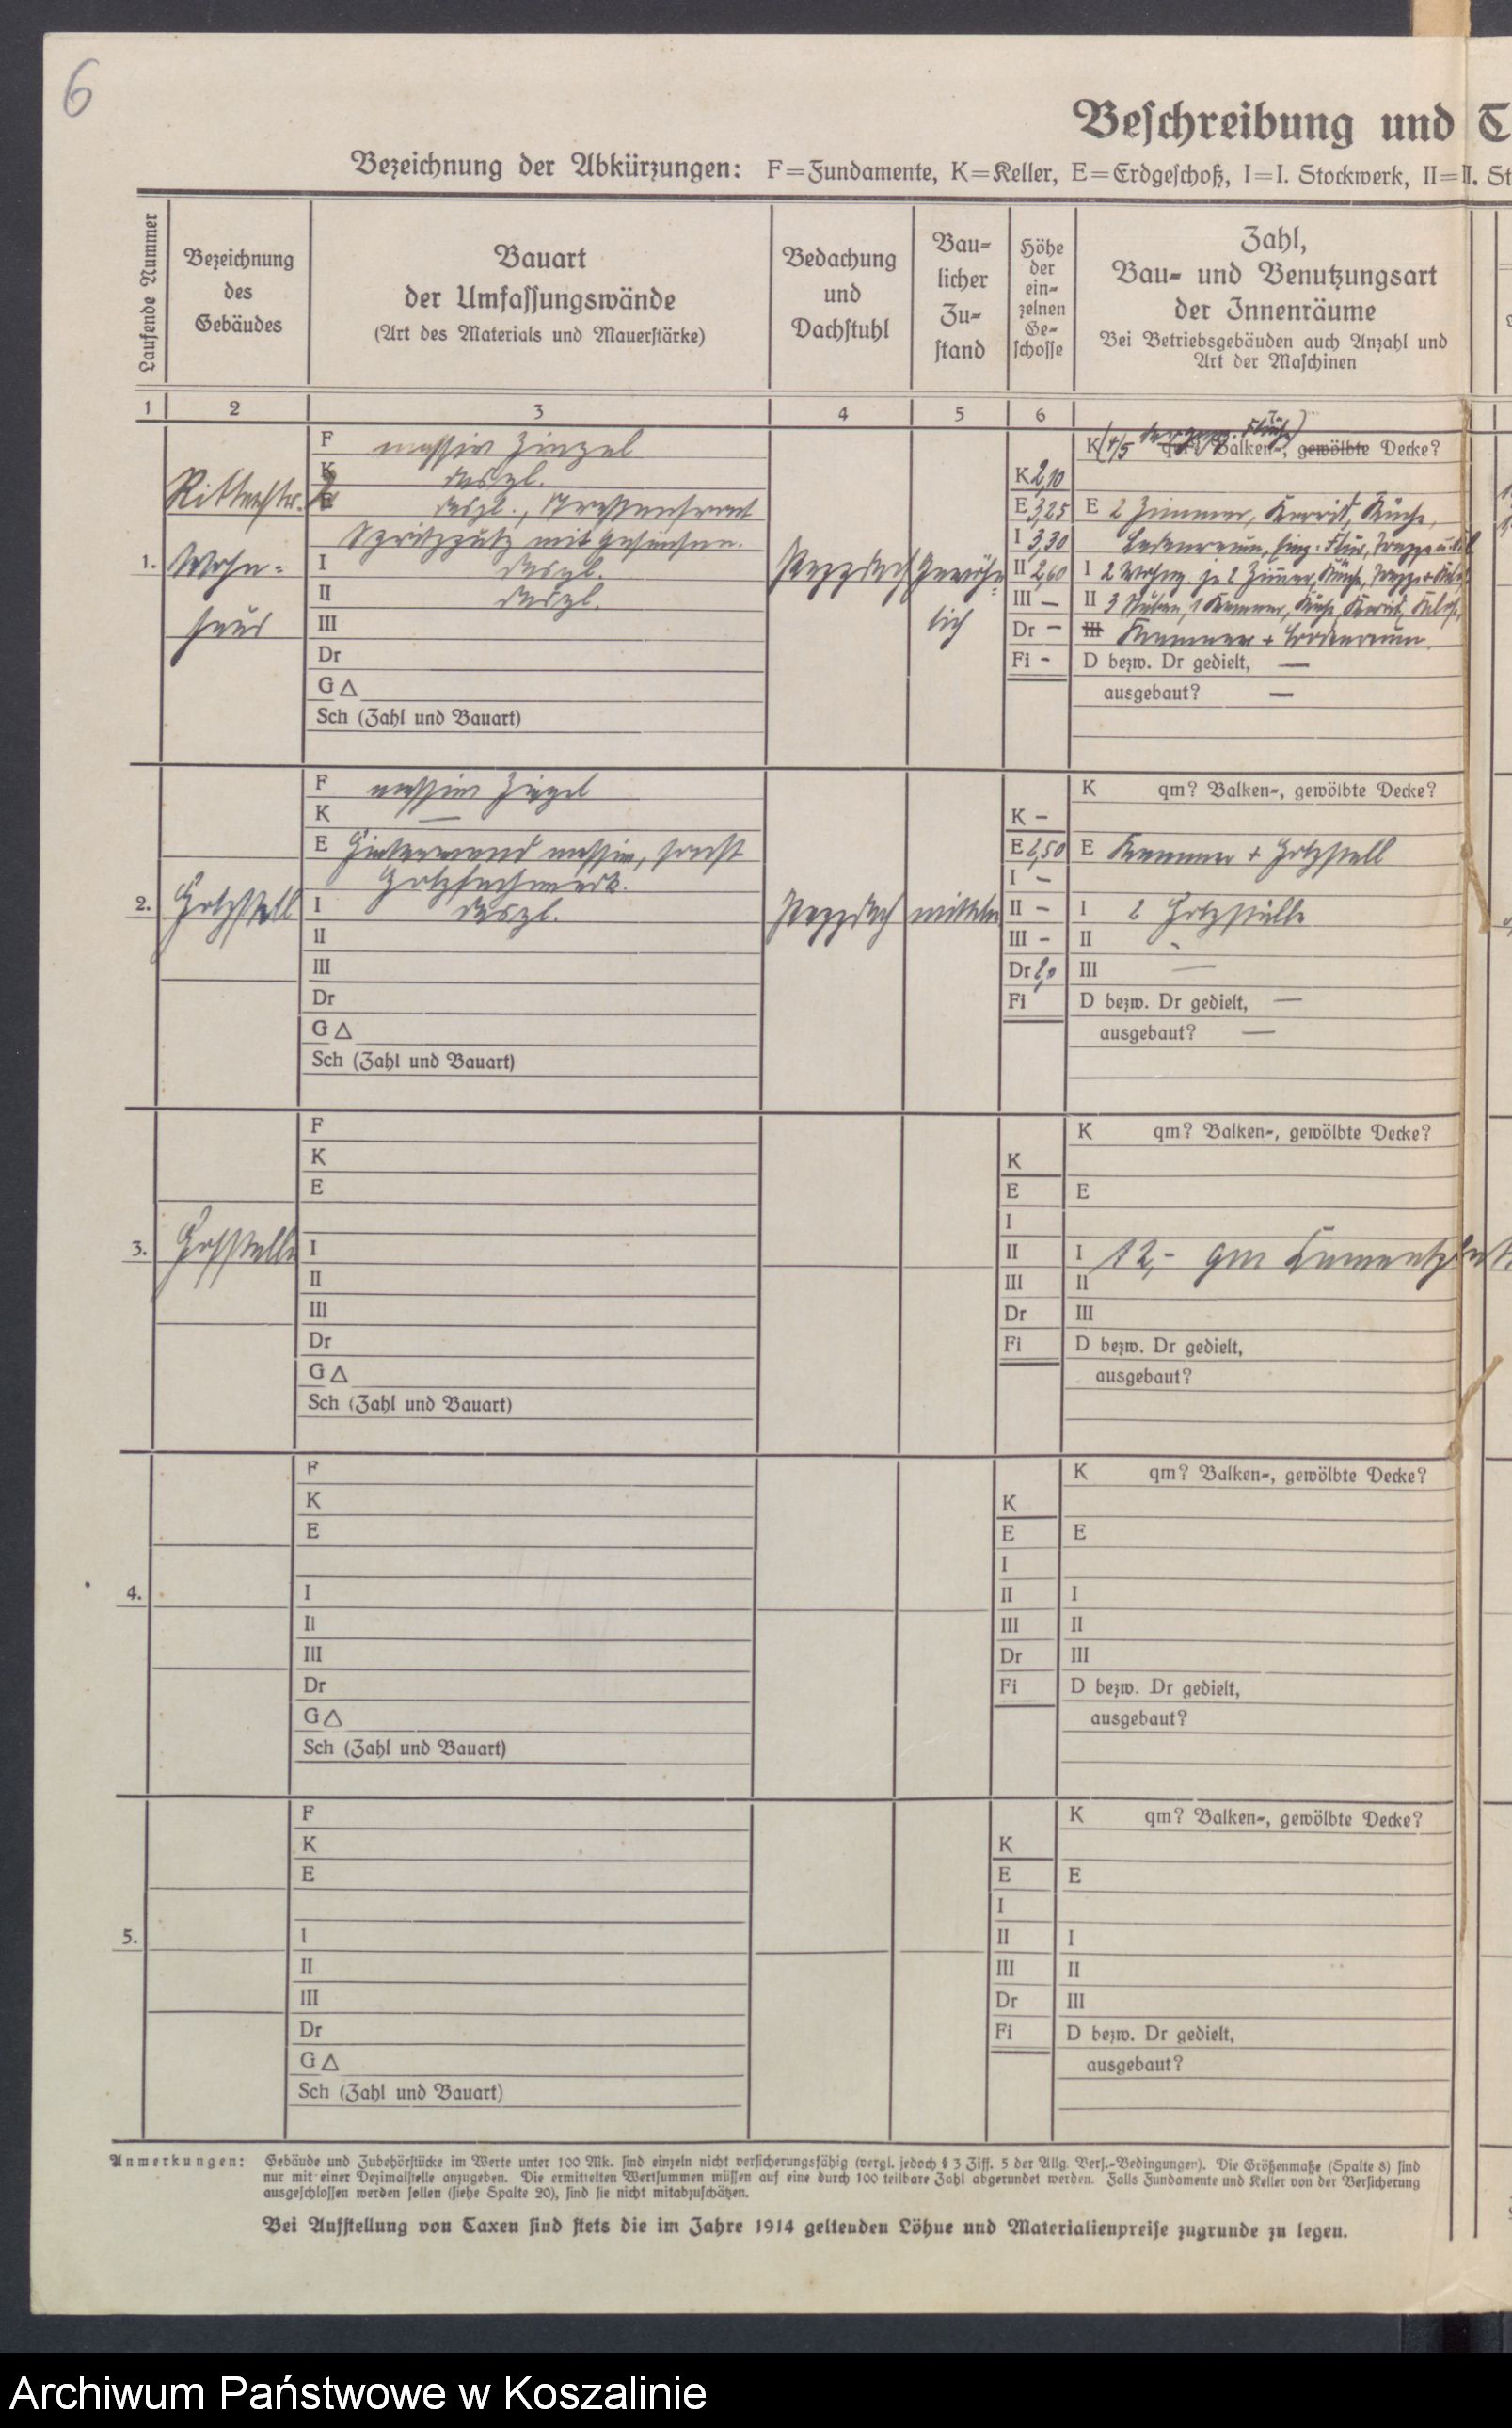 6
Beschreibung und T
Bezeichnung der Abkürzungen: F=Fundamente, K=Keller, E=Erdgeschoß, I=I. Stockwerk, II=II. St
Laufende Nummer
Bezeichnung
des
Gebäudes
Bauart
der Umfassungswände
(Art des Materials und Mauerstärke)
Bedachung
und
Dachstuhl
Bau-
licher
Zu-
stand
Höhe
der
ein-
zelnen
Ge-
schosse
Zahl,
Bau- und Benutzungsart
der Innenräume
Bei Betriebsgebäuden auch Anzahl und
Art der Maschinen
1 2 3 4 5 6
1.
Ritterstr. 2
Wohn-
haus
F massiv Ziegel
K desgl.
E desgl., Strassenfront
Spritzputz mit Gesimsen.
I desgl.
II desgl.
III
Dr
G△
Sch (Zahl und Bauart)
Pappdach
Gewöhn-
lich
K 2,10
E 3,25
I 3,30
II 2,60
III -
Dr -
Fi -
K (4/5 Balken-, gewölbte Decke?
E 2 Zimmer, Korrid, Küche,
Ladenraum, Flur,
I 2 Wohng. je 2 Zimmer, Küche,
II 3 Stuben, 1 Kammer, Küche, Korrid,
III Kammer + Bodenraum.
D bezw. Dr gedielt, —
ausgebaut? —
2.
Holzstall
F massiv Ziegel
K —
E Hinterwand massiv, sonst
Holzfachwerk.
I desgl.
II
III
Dr
G△
Sch (Zahl und Bauart)
Pappdach
mittelm
K -
E 2,50
I -
II -
III -
Dr 2,0
Fi
K qm? Balken-, gewölbte Decke?
E Kammer + Holzstall
I 2 Holzställe
II -
III —
D bezw. Dr gedielt, —
ausgebaut? —
3.
Hofstelle
F
K
E
I
II
III
Dr
G△
Sch (Zahl und Bauart)
K
E
I
II
III
Dr
Fi
K qm? Balken-, gewölbte Decke?
E
I 12,- qm
II
III
D bezw. Dr gedielt,
ausgebaut?
4.
F
K
E
I
II
III
Dr
G△
Sch (Zahl und Bauart)
K
E
I
II
III
Dr
Fi
K qm? Balken-, gewölbte Decke?
E
I
II
III
D bezw. Dr gedielt,
ausgebaut?
5.
F
K
E
I
II
III
Dr
G△
Sch (Zahl und Bauart)
K
E
I
II
III
Dr
Fi
K qm? Balken-, gewölbte Decke?
E
I
II
III
D bezw. Dr gedielt,
ausgebaut?
Anmerkungen: Gebäude und Zubehörstücke im Werte unter 100 Mk. sind einzeln nicht versicherungsfähig (vergl. jedoch § 3 Ziff. 5 der Allg. Vers.-Bedingungen). Die Größenmaße (Spalte 8) sind
nur mit einer Dezimalstelle anzugeben. Die ermittelten Wertsummen müssen auf eine durch 100 teilbare Zahl abgerundet werden. Falls Fundamente und Keller von der Versicherung
ausgeschlossen werden sollen (siehe Spalte 20), sind sie nicht mitabzuschätzen.
Bei Aufstellung von Taxen sind stets die im Jahre 1914 geltenden Löhne und Materialienpreise zugrunde zu legen.
Archiwum Państwowe w Koszalinie